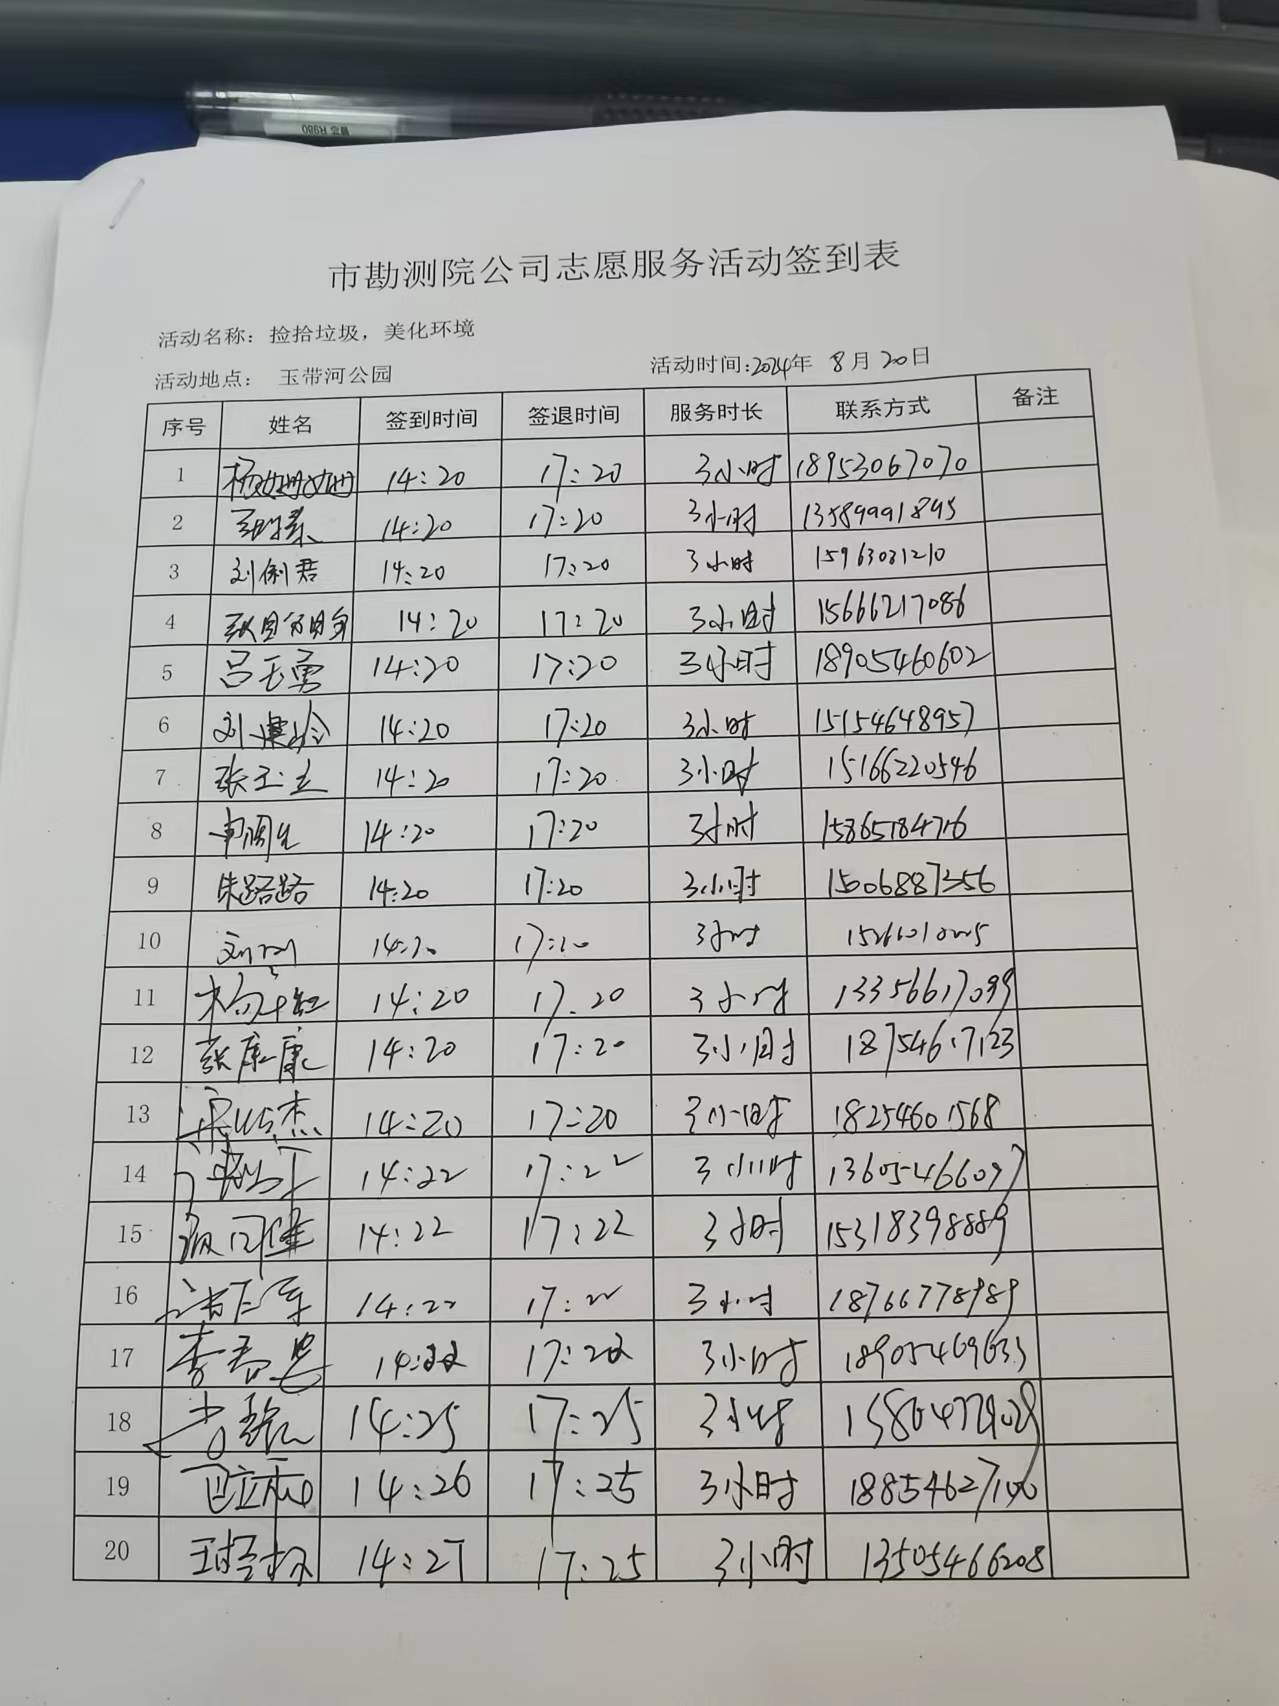 市勘测院公司志愿服务活动签到表
活动名称：捡拾垃圾，美化环境
活动地点： 玉带河公园 活动时间:2024年 8月 20日
序号 姓名 签到时间 签退时间 服务时长 联系方式 备注
1 杨姗姗 14:20 17:20 3小时 18953067070
2 14:20 17:20 3小时 13589991895
3 刘俐君 14:20 17:20 3小时 15963031210
4 14:20 17:20 3小时 15666217086
5 吕玉勇 14:20 17:20 3小时 18905460602
6 14:20 17:20 3小时 15154648957
7 张玉立 14:20 17:20 3小时 15166220546
8 14:20 17:20 3小时
9 朱路路 14:20 17:20 3小时 15006887356
10 14:20 17:20 3小时
11 14:20 17:20 3小时 13356617099
12 张康康 14:20 17:20 3小时 18754617123
13 14:20 17:20 3小时 18254601568
14 14:22 17:22 3小时 13605466097
15 14:22 17:22 3小时 15318398889
16 14:22 17:22 3小时 18766778989
17 14:22 17:22 3小时 18905469633
18 14:25 17:25 3小时
19 14:26 17:25 3小时
20 14:27 17:25 3小时 13505466208